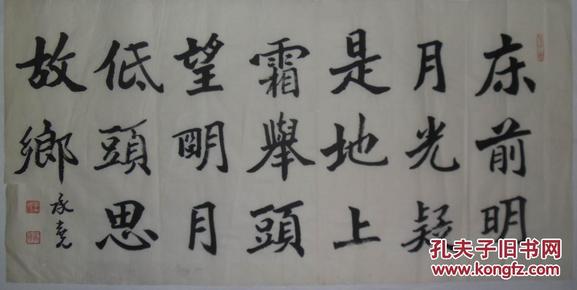 床前明
月光疑
是地上
霜舉頭
望明月
低頭思
故鄉
承堯
孔夫子旧书网
www.kongfz.com